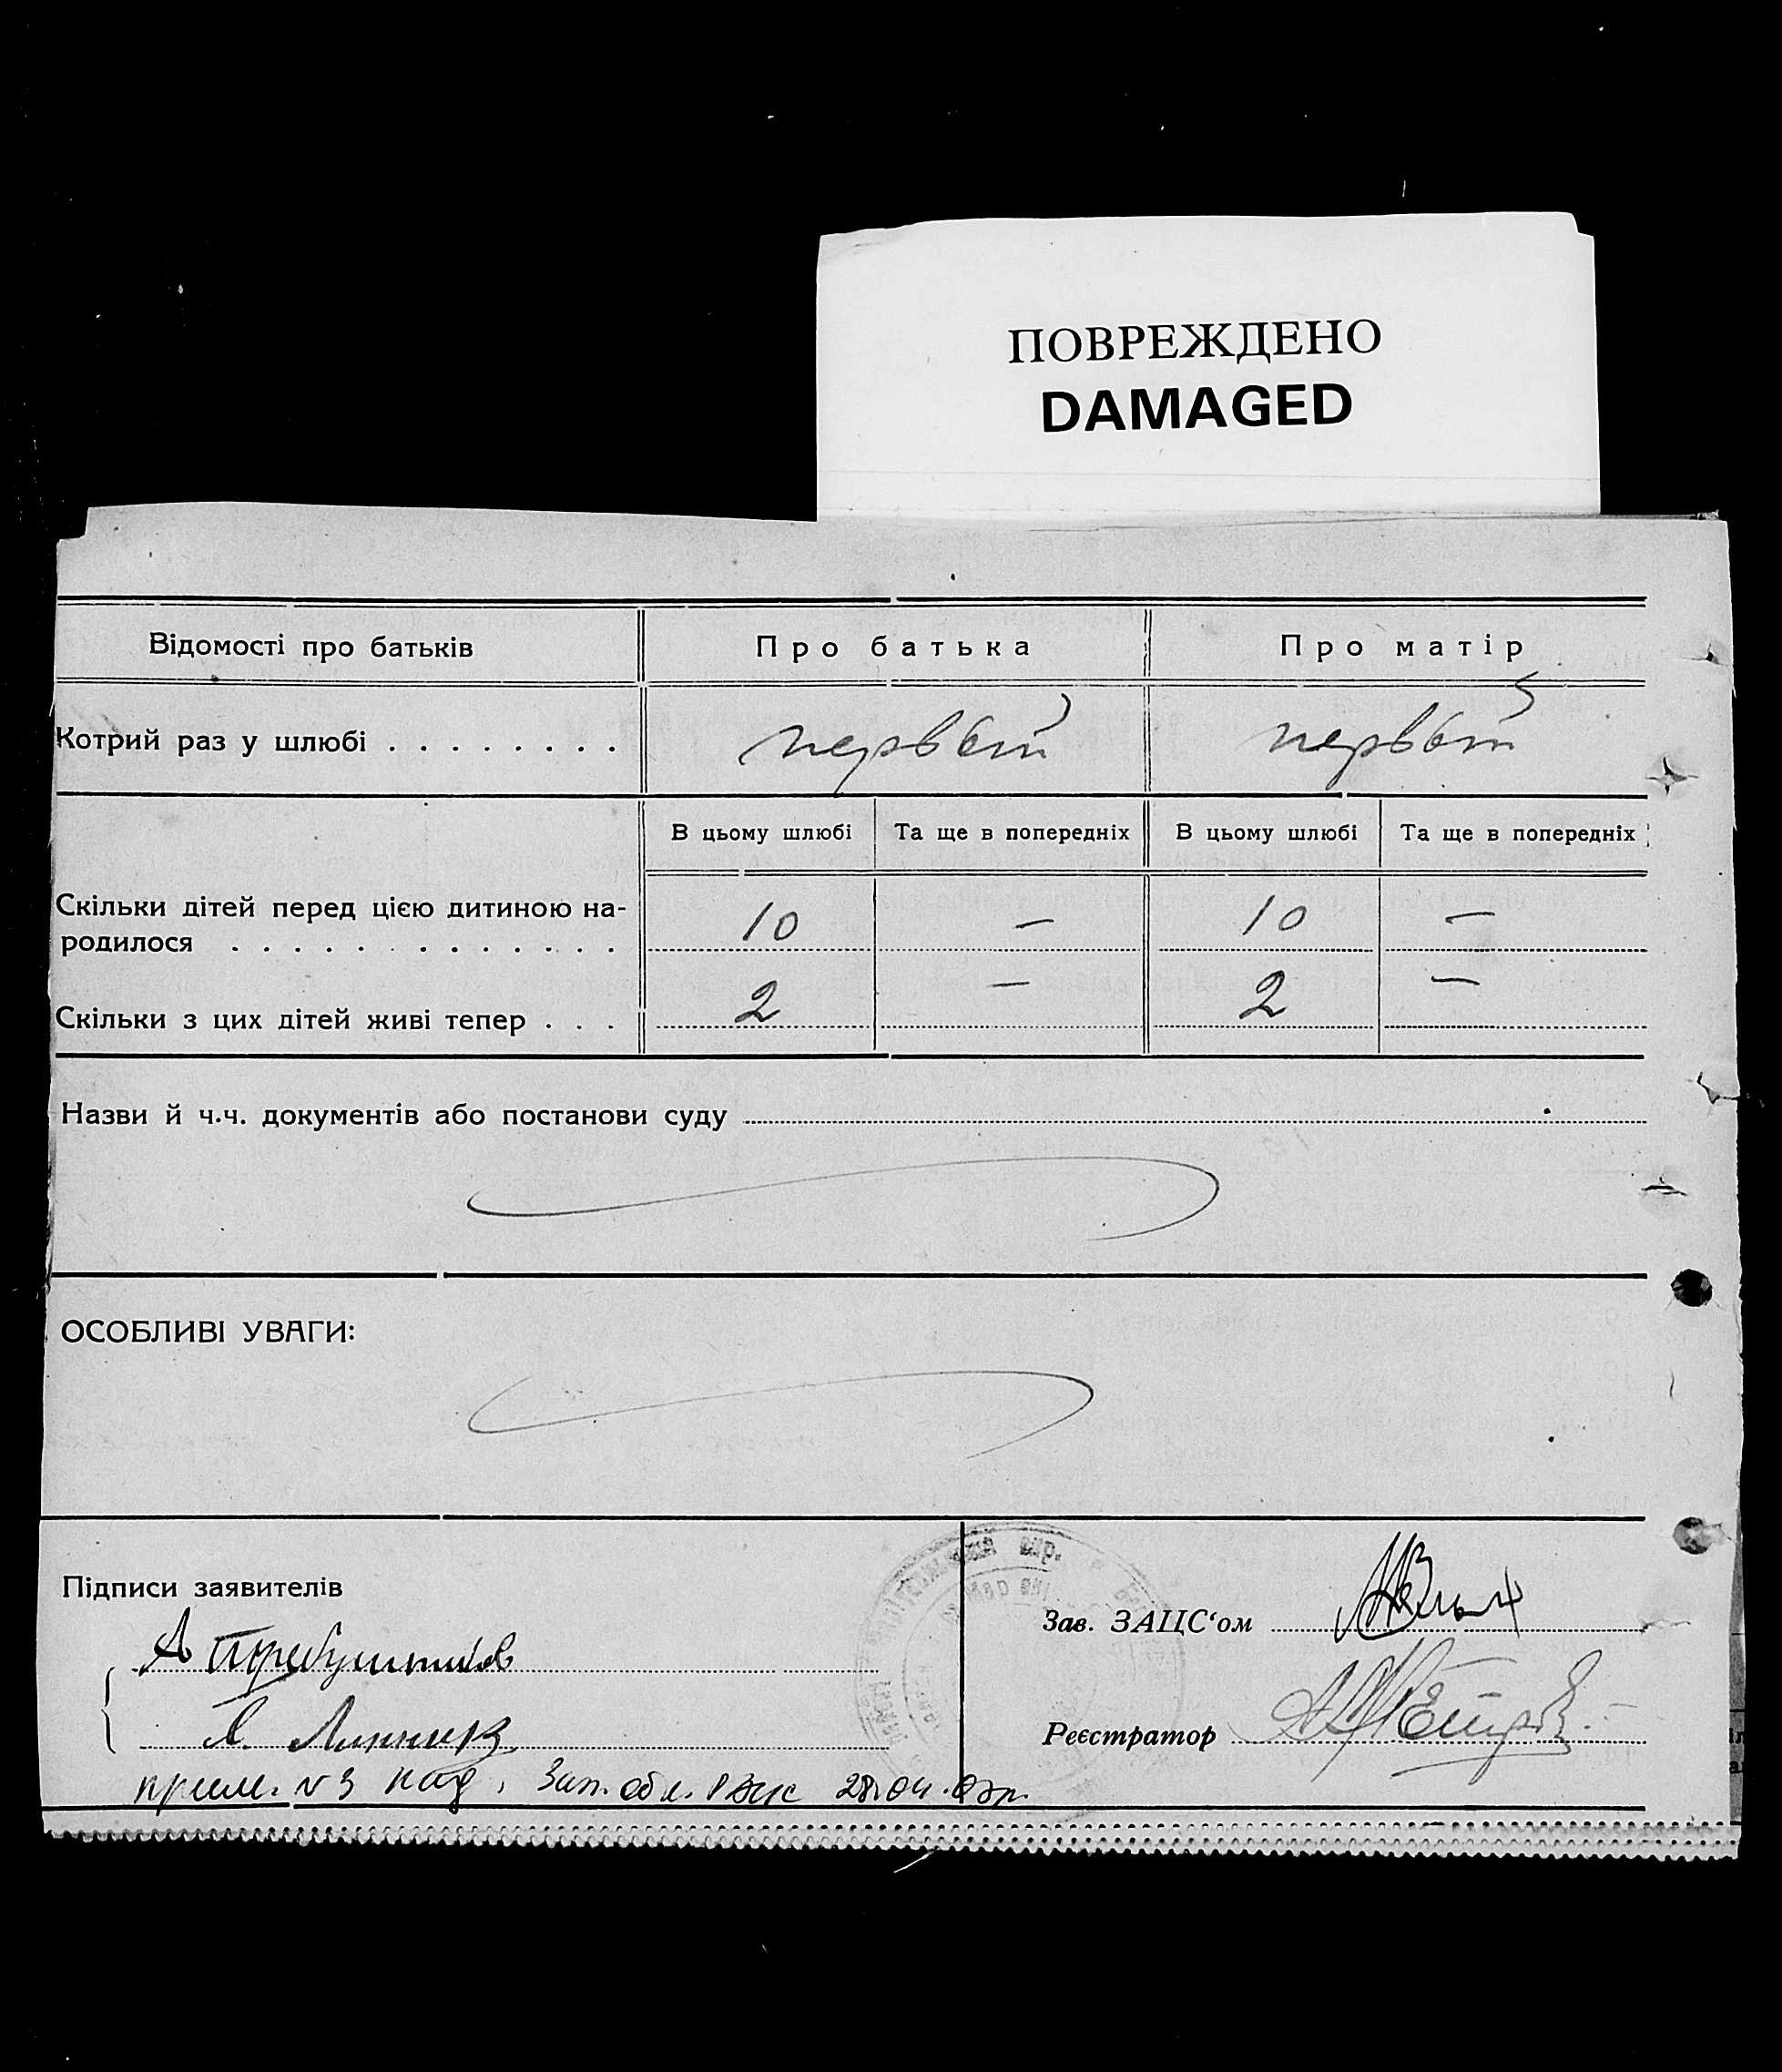 ПОВРЕЖДЕНО
DAMAGED
Відомості про батьків Про батька Про матір
Котрий раз у шлюбі . . . . . . . . первый первый
В цьому шлюбі Та ще в попередніх В цьому шлюбі Та ще в попередніх
Скільки дітей перед цією дитиною на-
родилося . . . . . . . . . . . . . 10 — 10 —
Скільки з цих дітей живі тепер . . . 2 — 2 —
Назви й ч.ч. документів або постанови суду
ОСОБЛИВІ УВАГИ:
Підписи заявителів
Зав. ЗАЦС‘ом
А
Л. Линник
Реєстратор
N 3